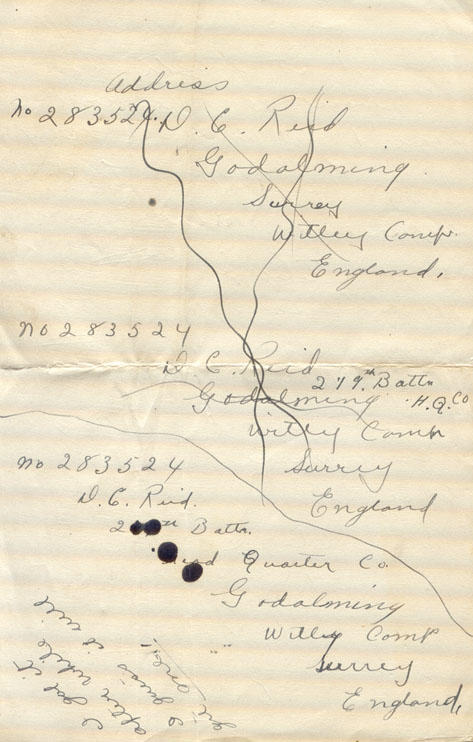 Address
No 283524. D. C. Reid
Godalming.
Surrey
Witley Camp.
England.
No 283524
D C Reid
219th Battn
Godalming H.Q. Co
Witley Camp
Surrey
England
No 283524
D. C. Reid.
2 th Battn.
Quarter Co.
Godalming
Witley Camp
Surrey
England,
I got it
after while
I guess it will